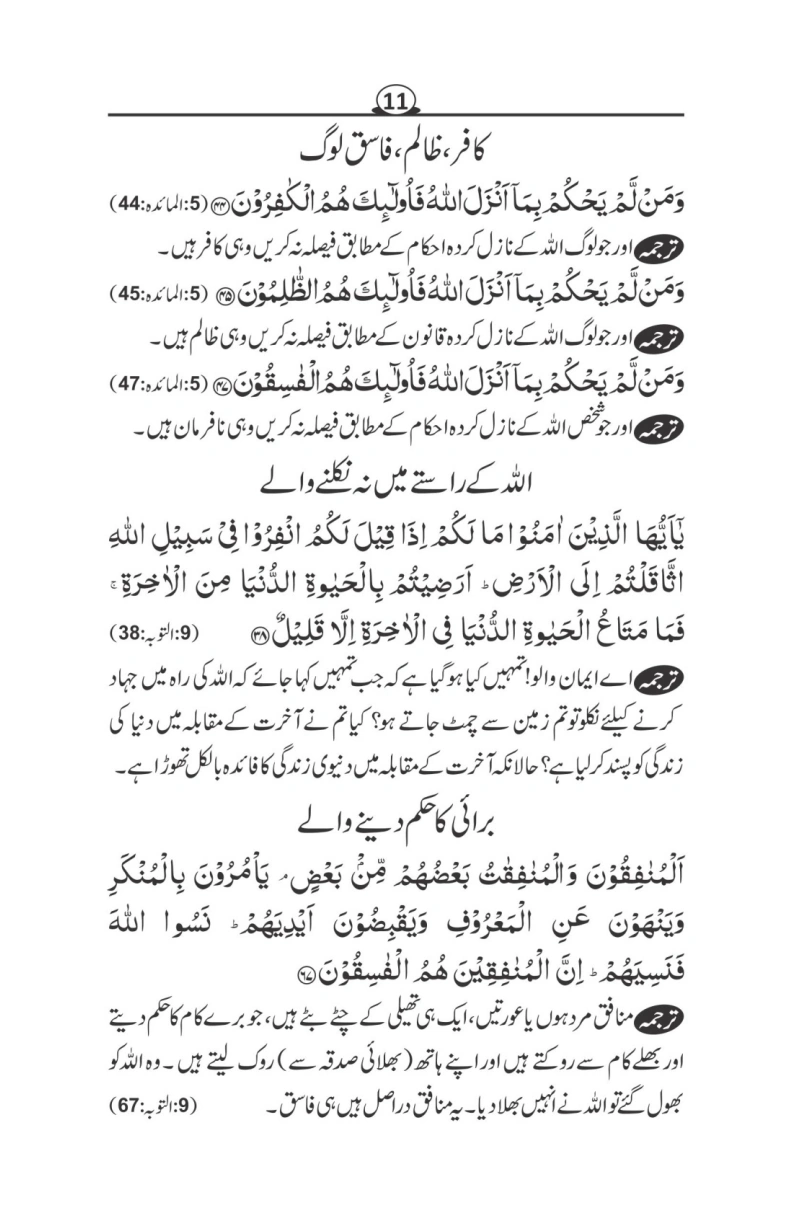 11
کافر، ظالم، فاسق لوگ
وَمَنْ لَّمْ يَحْكُمْ بِمَآ اَنْزَلَ اللّٰهُ فَاُولٰٓئِكَ هُمُ الْكٰفِرُوْنَ ﴿۴۴﴾ (5:المائدہ:44)
ترجمہ اور جو لوگ اللہ کے نازل کردہ احکام کے مطابق فیصلہ نہ کریں وہی کافر ہیں۔
وَمَنْ لَّمْ يَحْكُمْ بِمَآ اَنْزَلَ اللّٰهُ فَاُولٰٓئِكَ هُمُ الظّٰلِمُوْنَ ﴿۴۵﴾ (5:المائدہ:45)
ترجمہ اور جو لوگ اللہ کے نازل کردہ قانون کے مطابق فیصلہ نہ کریں وہی ظالم ہیں۔
وَمَنْ لَّمْ يَحْكُمْ بِمَآ اَنْزَلَ اللّٰهُ فَاُولٰٓئِكَ هُمُ الْفٰسِقُوْنَ ﴿۴۷﴾ (5:المائدہ:47)
ترجمہ اور جو شخص اللہ کے نازل کردہ احکام کے مطابق فیصلہ نہ کریں وہی نافرمان ہیں۔
اللہ کے راستے میں نہ نکلنے والے
يٰٓاَيُّهَا الَّذِيْنَ اٰمَنُوْا مَا لَكُمْ اِذَا قِيْلَ لَكُمُ انْفِرُوْا فِيْ سَبِيْلِ اللّٰهِ
اثَّاقَلْتُمْ اِلَى الْاَرْضِ ؕ اَرَضِيْتُمْ بِالْحَيٰوةِ الدُّنْيَا مِنَ الْاٰخِرَةِ ۚ
فَمَا مَتَاعُ الْحَيٰوةِ الدُّنْيَا فِي الْاٰخِرَةِ اِلَّا قَلِيْلٌ ﴿۳۸﴾ (9:التوبہ:38)
ترجمہ اے ایمان والو! تمہیں کیا ہوگیا ہے کہ جب تمہیں کہا جائے کہ اللہ کی راہ میں جہاد
کرنے کیلئے نکلو تو تم زمین سے چمٹ جاتے ہو؟ کیا تم نے آخرت کے مقابلہ میں دنیا کی
زندگی کو پسند کرلیا ہے؟ حالانکہ آخرت کے مقابلہ میں دنیوی زندگی کا فائدہ بالکل تھوڑا ہے۔
برائی کا حکم دینے والے
اَلْمُنٰفِقُوْنَ وَالْمُنٰفِقٰتُ بَعْضُهُمْ مِّنْۢ بَعْضٍ ۘ يَاْمُرُوْنَ بِالْمُنْكَرِ
وَيَنْهَوْنَ عَنِ الْمَعْرُوْفِ وَيَقْبِضُوْنَ اَيْدِيَهُمْ ؕ نَسُوا اللّٰهَ
فَنَسِيَهُمْ ؕ اِنَّ الْمُنٰفِقِيْنَ هُمُ الْفٰسِقُوْنَ ﴿۶۷﴾
ترجمہ منافق مرد ہوں یا عورتیں، ایک ہی تھیلی کے چٹے بٹے ہیں، جو برے کام کا حکم دیتے
اور بھلے کام سے روکتے ہیں اور اپنے ہاتھ (بھلائی صدقہ سے) روک لیتے ہیں۔ وہ اللہ کو
بھول گئے تو اللہ نے انہیں بھلا دیا۔ یہ منافق دراصل ہیں ہی فاسق۔ (9:التوبہ:67)